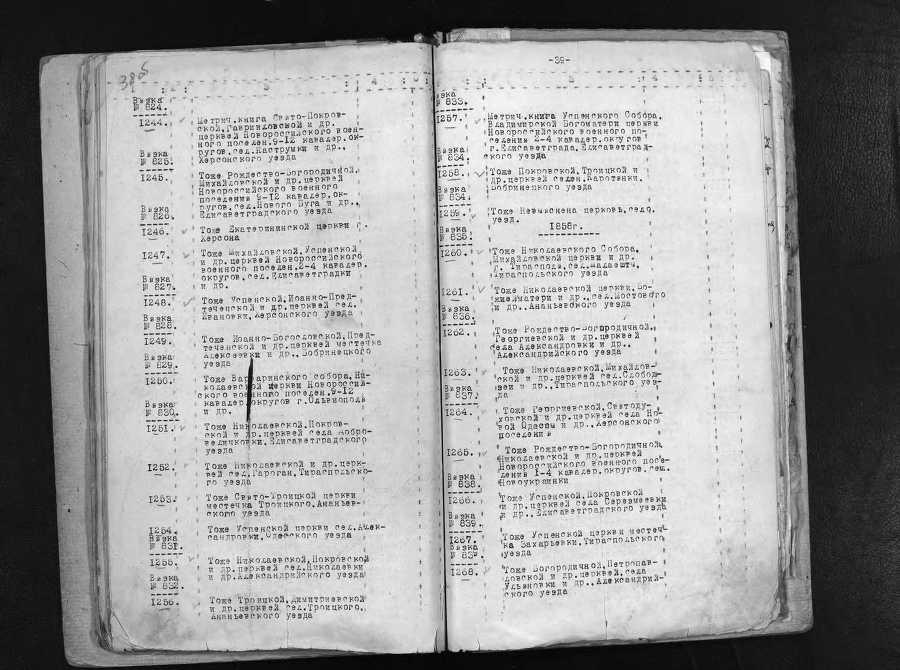 385
Вязка
№ 824.
1244.
Метрич.книга Свято-Покров-
ской,Гавриловской и др.
церквей Новороссийского воен-
ного поселен.9-12 кавалер.ок-
ругов,сел.Каструмки и др.,
Херсонского уезда
Вязка
№ 825.
1245.
Тоже Рождество-Богородичной,
Михайловской и др.церквей
Новороссийского военного
поселения 9-12 кавалер.ок-
ругов,сел.Нового Буга и др.,
Елисаветградского уезда
Вязка
№ 826.
1246.
Тоже Екатерининской церкви г.
Херсона
1247.
Тоже Михайловской,Успенской
и др.церквей Новороссийского
военного поселен.2-4 кавалер.
округов,сел.Елисаветградки
и др.
Вязка
№ 827.
1248.
Тоже Успенской,Иоанно-Пред-
теченской и др.церквей сел.
Ивановки,Херсонского уезда
Вязка
№ 828.
1249.
Тоже Иоанно-Богословской,Пред-
теченской и др.церквей местечка
Алексеевки и др.,Бобринецкого
уезда
Вязка
№ 829.
1250.
Тоже Варваринского собора,Ни-
колаевской церкви Новороссий-
ского военного поселен.9-12
кавалер.округов г.Ольвиополя
и др.
Вязка
№ 830.
1251.
Тоже Николаевской,Покров-
ской и др.церквей села Добро-
величковки,Елисаветградского
уезда
1252.
Тоже Николаевской и др.церк-
вей сел.Гароган,Тираспольско-
го уезда
1253.
Тоже Свято-Троицкой церкви
местечка Троицкого,Ананьев-
ского уезда
1254.
Тоже Успенской церкви сел.Алек-
сандровки,Одесского уезда
Вязка
№ 831.
1255.
Тоже Николаевской,Покровской
и др.церквей сел.Николаевки
и др.Александрийского уезда
Вязка
№ 832.
1256.
Тоже Троицкой,Димитриевской
и др.церквей сел.Троицкого,
Ананьевского уезда
-39-
Вязка
№ 833.
1257.
Метрич.книга Успенского Собора,
Владимирской Богоматери церкви
Новороссийского военного по-
селения 2-4 кавалер.округов
г.Елисаветграда,Елисаветград-
ского уезда
Вязка
№ 834.
1258.
Тоже Покровской,Троицкой и
др.церквей селен.
Бобринецкого уезда
Вязка
№ 834.
1259.
Тоже Невыяснена церковь,село,
уезд.
Вязка
№ 835.
1858г.
1260.
Тоже Николаевского Собора,
Михайловской церкви и др.
г. Тирасполя,сел.Малаешты,
Тираспольского уезда
1261.
Тоже Николаевской церкви,Бо-
жиеяМатери и др.,сел.Мостового
и др.,Ананьевского уезда
Вязка
№ 836.
1262.
Тоже Рождество-Богородичной,
Георгиевской и др.церквей
села Александровки и др.,
Александрийского уезда
1263.
Тоже Николаевской,Михайлов-
ской и др.церквей сел.Слобод-
зеи и др.,Тираспольского уез-
да
Вязка
№ 837.
1264.
Тоже Георгиевской,Святоду-
ховской и др.церквей села Но-
вой Одессы и др.,Херсонского
поселения
1265.
Тоже Рождество-Богородичной,
Николаевской и др.церквей
Новороссийского военного посе-
ления 1-4 кавалер.округов,сел.
Новоукраинки
Вязка
№ 838.
1266.
Тоже Успенской,Покровской
и др.церквей села Березнеевки
и др.,Елисаветградского уезда
Вязка
№ 839.
1267.
Тоже Успенской церкви местеч-
ка Захарьевки,Тираспольского
уезда
Вязка
1268.
Тоже Богородичной,Петропав-
ловской и др.церквей,села
Ульяновки и др.,Александрий-
ского уезда